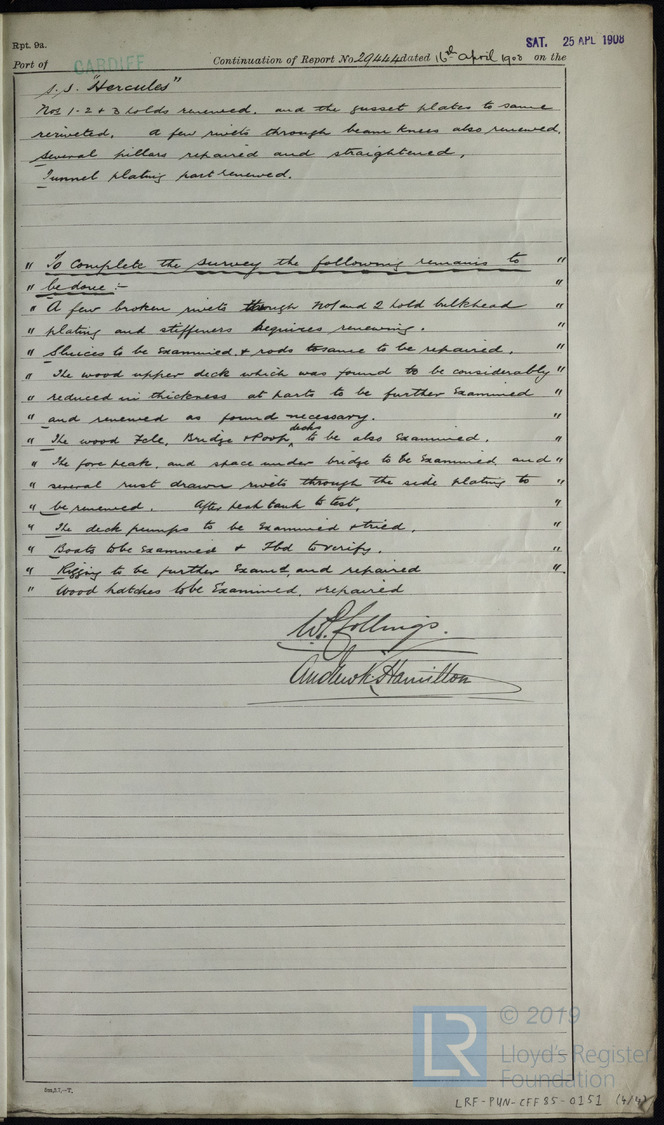 Rpt. 9a.
SAT. 25 APL 1908
Port of CARDIFF Continuation of Report No. 29444 dated 16th April 1908 on the
S.S. "Hercules"
Nos 1-2 & 3 holds renewed, and the gusset plates to same
reriveted. A few rivets through beam knees also renewed.
Several pillars repaired and straightened,
Tunnel plating part renewed.
" To Complete the survey the following remains to "
" be done :- "
" A few broken rivets through No 1 and 2 hold bulkhead "
" plating and stiffeners requires renewing. "
" Sluices to be Examined, & rods to same to be repaired. "
" The wood upper deck which was found to be considerably "
" reduced in thickness at parts to be further Examined "
" and renewed as found necessary. "
" The wood Fcle, Bridge & Poop decks to be also Examined. "
" The fore peak, and space under bridge to be Examined, and "
" several rust drawn rivets through the side plating to "
" be renewed. After peak tank to test, "
" The deck pumps to be Examined & tried. "
" Boats to be Examined & Fbd to verify. "
" Rigging to be further Examd, and repaired "
" Wood hatches to be Examined, & repaired
W. Collings.
Andrew K. Hamilton
© 2019
LR
Lloyd's Register
Foundation
LRF-PUN-CFF85-0151 (4/4)